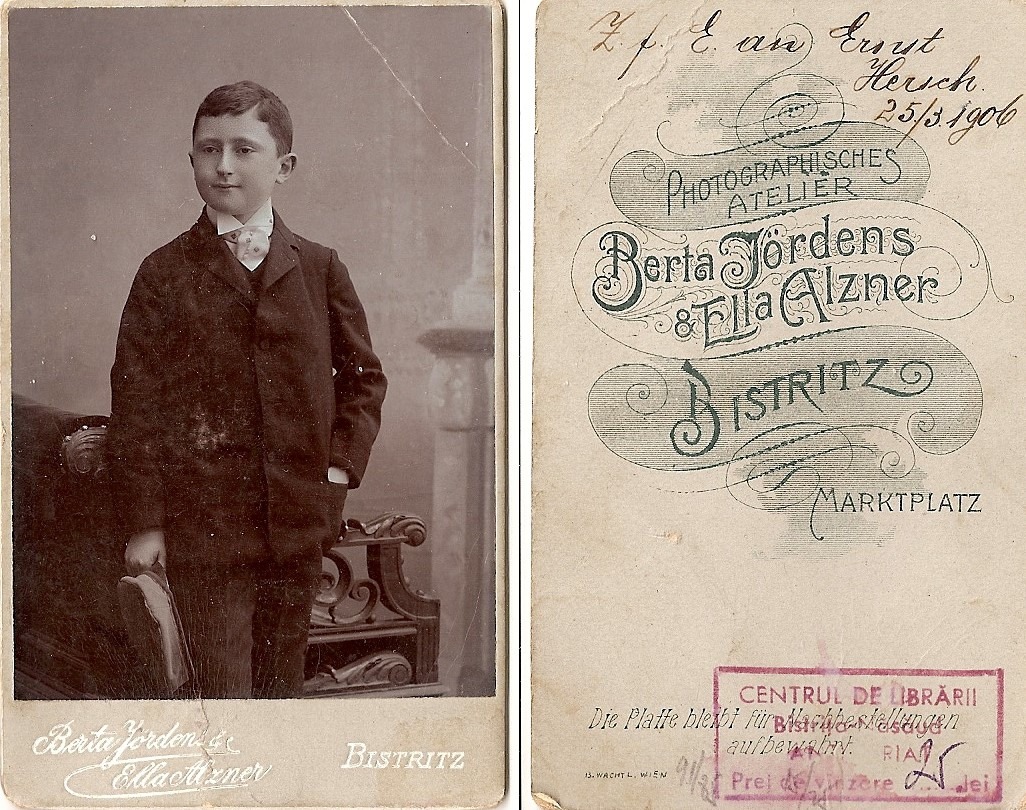 Berta Jördens &
Ella Alzner
BISTRITZ
Z. f. E. an Ernst
Hersch.
25/3.1906
PHOTOGRAPHISCHES
ATELIER
Berta Jördens
& Ella Alzner
BISTRITZ
MARKTPLATZ
Die Platte bleibt für Nachbestellungen
aufbewahrt.
B. WACHTL, WIEN
CENTRUL DE LIBRĂRII
Bistrița Năsăud
Preț de vînzare 25 lei